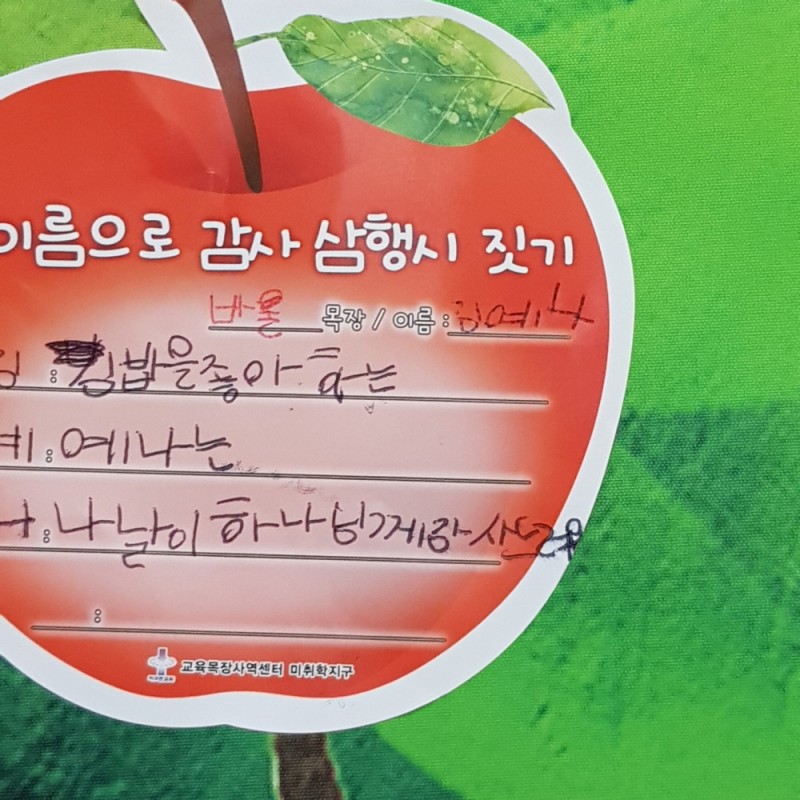 이름으로 감사 삼행시 짓기
바울 목장 / 이름 : 김예나
김 : 김밥을좋아하는
예 : 예나는
나 : 나날이 하나님게감사
:
교육목장사역센터 미취학지구